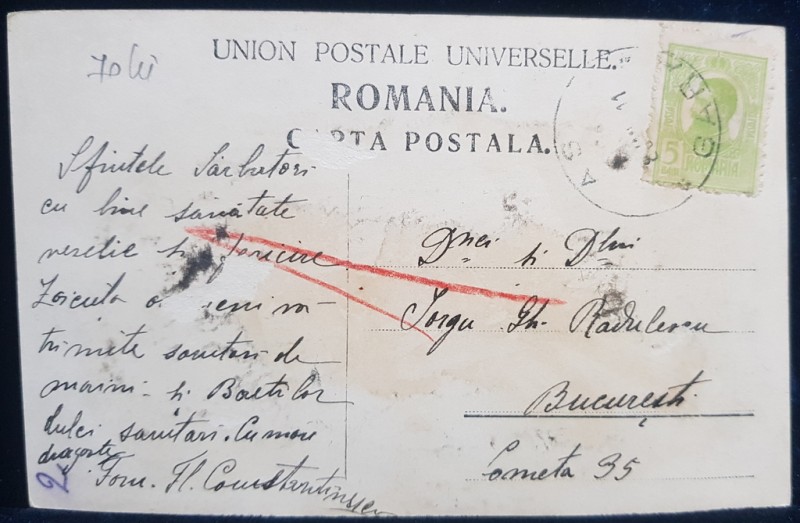 70 lei
UNION POSTALE UNIVERSELLE.
ROMANIA.
CARTA POSTALA.
GARA
5
ROMANIA
Sfintele Sărbători
cu bine sănătate
veselie și fericire
Zoicuța
trimite sărutări de
maini și
dulci sărutări. Cu mare
dragoste
Fam. Fl. Constantinescu
2
Dnei și Dlui
Iorgu Gh. Radulescu
București
Cometa 35